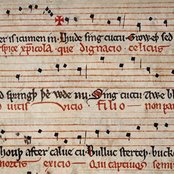 er is icumen in. Lhude sing cucu. Groweþ sed
spice xpicola que dignacio celicus
d springþ þe wde nu. Sing cucu Awe ble
vicio filio non par
teþ after calue cu. Bulluc sterteþ. buck
mortis exicio Qui captiuos semiui